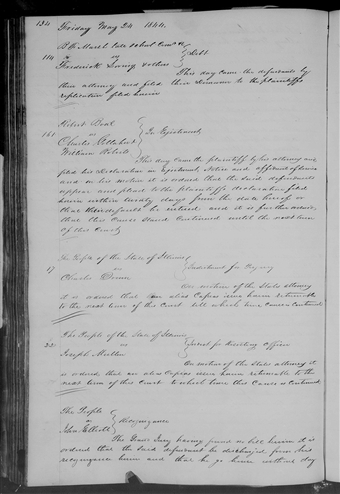 134
Friday May 24 1844.
114
vs
Debt
This day came the defendants by
their attorney and filed their Demurrer to the plaintiffs
replication filed herein
161
vs
In Ejectment
This day came the plaintiff by his attorney and
filed his Declaration in Ejectment, Notice and affidavit of service
and on his motion it is ordered that the said defendants
appear and plead to the plaintiffs declaration filed
herein within twenty days from the date hereof or
that default be entered and it is further ordered,
that this Cause Stand Continued until the next term
of this Court
The People of the State of Illinois
17 vs
Indictment for
Charles
On motion of the States attorney
it is ordered that an alias Capias issue herein returnable to
the next term of this Court till which time Cause is Continued
The People of the State of Illinois
22 vs
Indict for Resisting Officer
Joseph
On motion of the States attorney it
is ordered that an alias Capias issue herein returnable to the
next term of this Court to which time this Cause is Continued
The People
vs
Recognizance
John Elliott
The Grand Jury having found no bill herein it is
ordered that the said defendant be discharged from his
recognizance herein and that he go hence without day